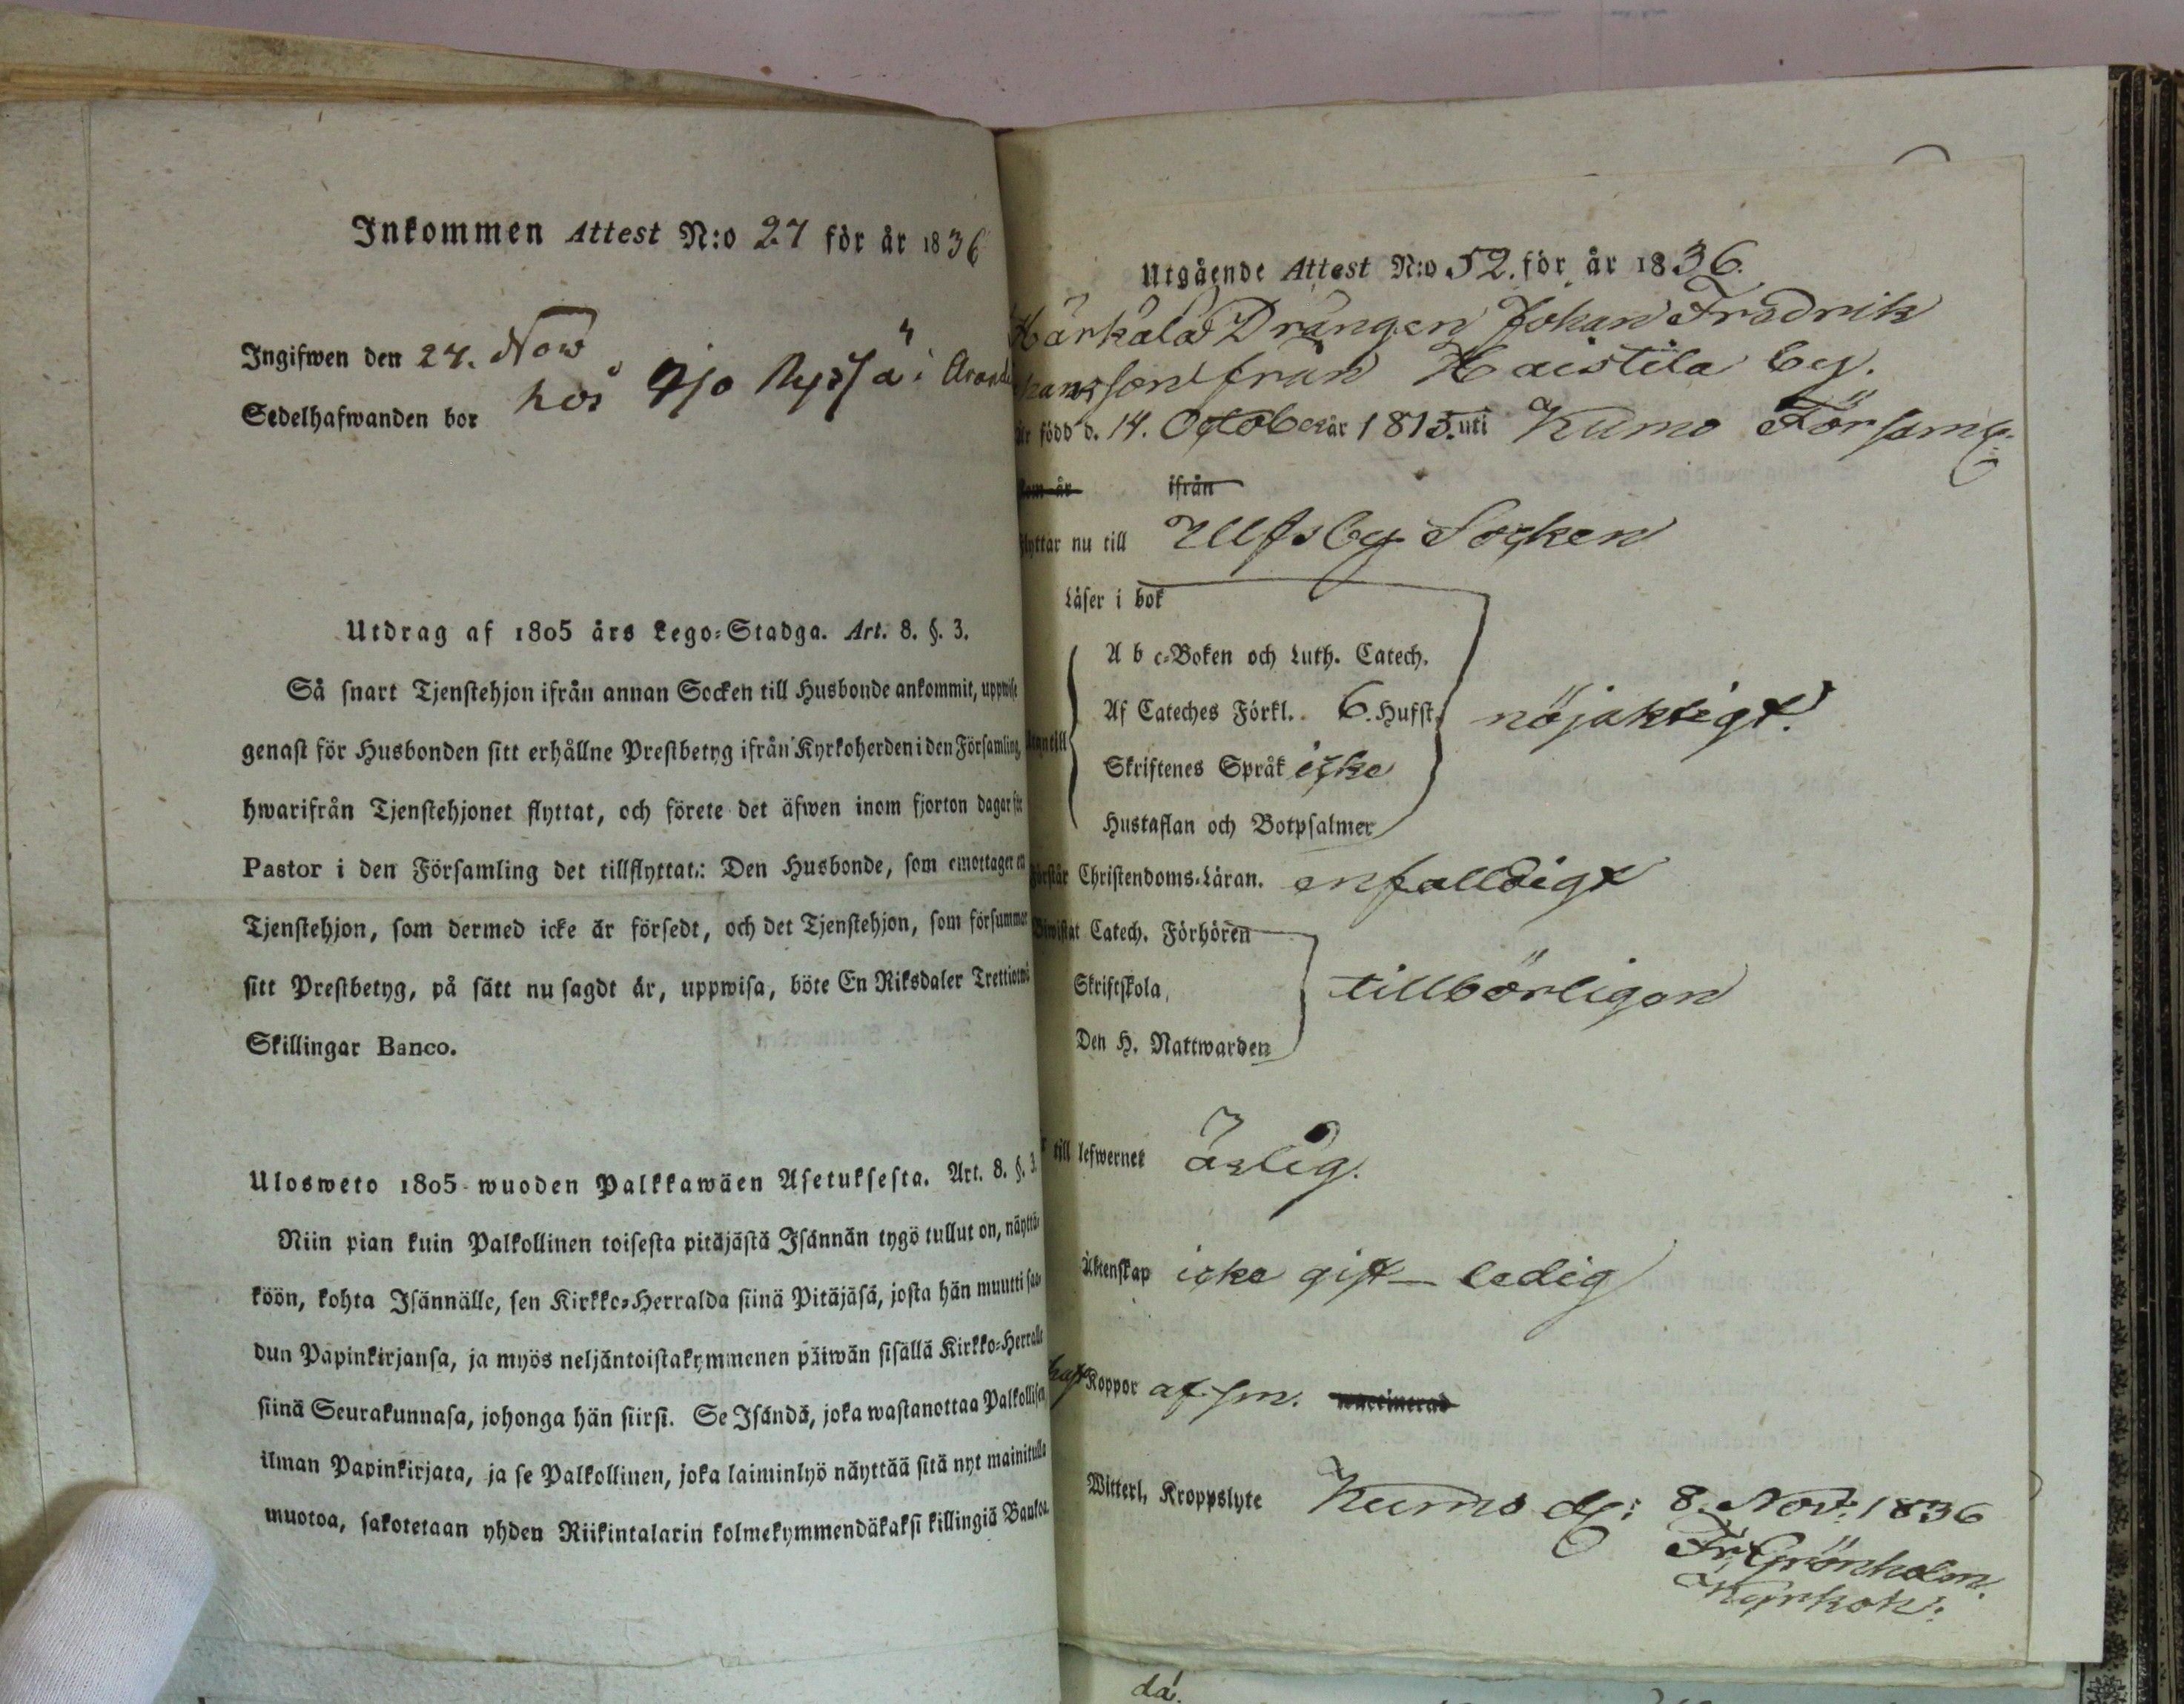 Inkommen Attest N:o 27 för år 1836
Ingifwen den 24. Nov
Sedelhafwanden bor hos
Utdrag af 1805 års Lego-Stadga. Art. 8. §. 3.
Så snart Tjenstehjon ifrån annan Socken till Husbonde ankommit, uppwise
genast för Husbonden sitt erhållne Prestbetyg ifrån Kyrkoherden i den Församling,
hwarifrån Tjenstehjonet flyttat, och förete det äfwen inom fjorton dagar för
Pastor i den Församling det tillflyttat: Den Husbonde, som emottager en
Tjenstehjon, som dermed icke är försedt, och det Tjenstehjon, som försummar
sitt Prestbetyg, på sätt nu sagdt är, uppwisa, böte En Riksdaler Trettiotwå
Skillingar Banco.
Ulosweto 1805 wuoden Palkkawäen Asetuksesta. Art. 8. §. 3.
Niin pian kuin Palkollinen toisesta pitäjästä Isännän tygö tullut on, näyttä-
köön, kohta Isännälle, sen Kirkko-Herralda siinä Pitäjäsä, josta hän muutti saa-
dun Papinkirjansa, ja myös neljäntoistakymmenen päiwän sisällä Kirkko-Herralle
siinä Seurakunnasa, johonga hän siirsi. Se Isändä, joka wastanottaa Palkollisen
ilman Papinkirjata, ja se Palkollinen, joka laiminlyö näyttää sitä nyt mainitulla
muotoa, sakotetaan yhden Riikintalarin kolmekymmendäkaksi killingiä Bankoa.
Utgående Attest N:o 52. för år 1836.
Drängen Johan Fredrik
från Haistila by.
är född d. 14. October år 1815. uti Kumo Församl.
kom år ifrån
flyttar nu till Ulfsby Socken
Läser i bok
A b c-Boken och Luth. Catech.
Af Cateches Förkl. 6. Hufst. nöjaktigt.
Utantill
Skriftenes Språk icke
Hustaflan och Botpsalmer
Förstår Christendoms-Läran. enfalldigt
Biwistat Catech. Förhören
Skriftskola, tillbörligen
Den H. Nattwarden
till lefwernet ärlig.
Äktenskap icke gift — ledig
haft Koppor af sm. vaccinerad
Witterl, Kroppslyte Kumo d: 8. Nov: 1836
Fr. Grönholm.
Kyrkoh:
da.